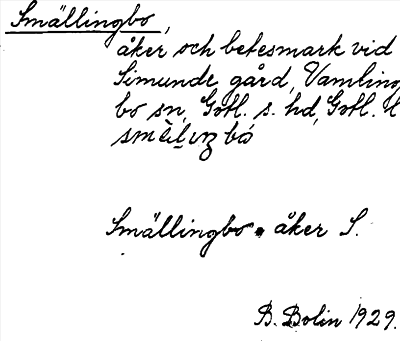 Smällingbo,
åker och betesmark vid
Simunde gård, Vamling-
bo sn, Gotl. s. hd, Gotl. l
Smällingbo åker S.
B. Bolin 1929.